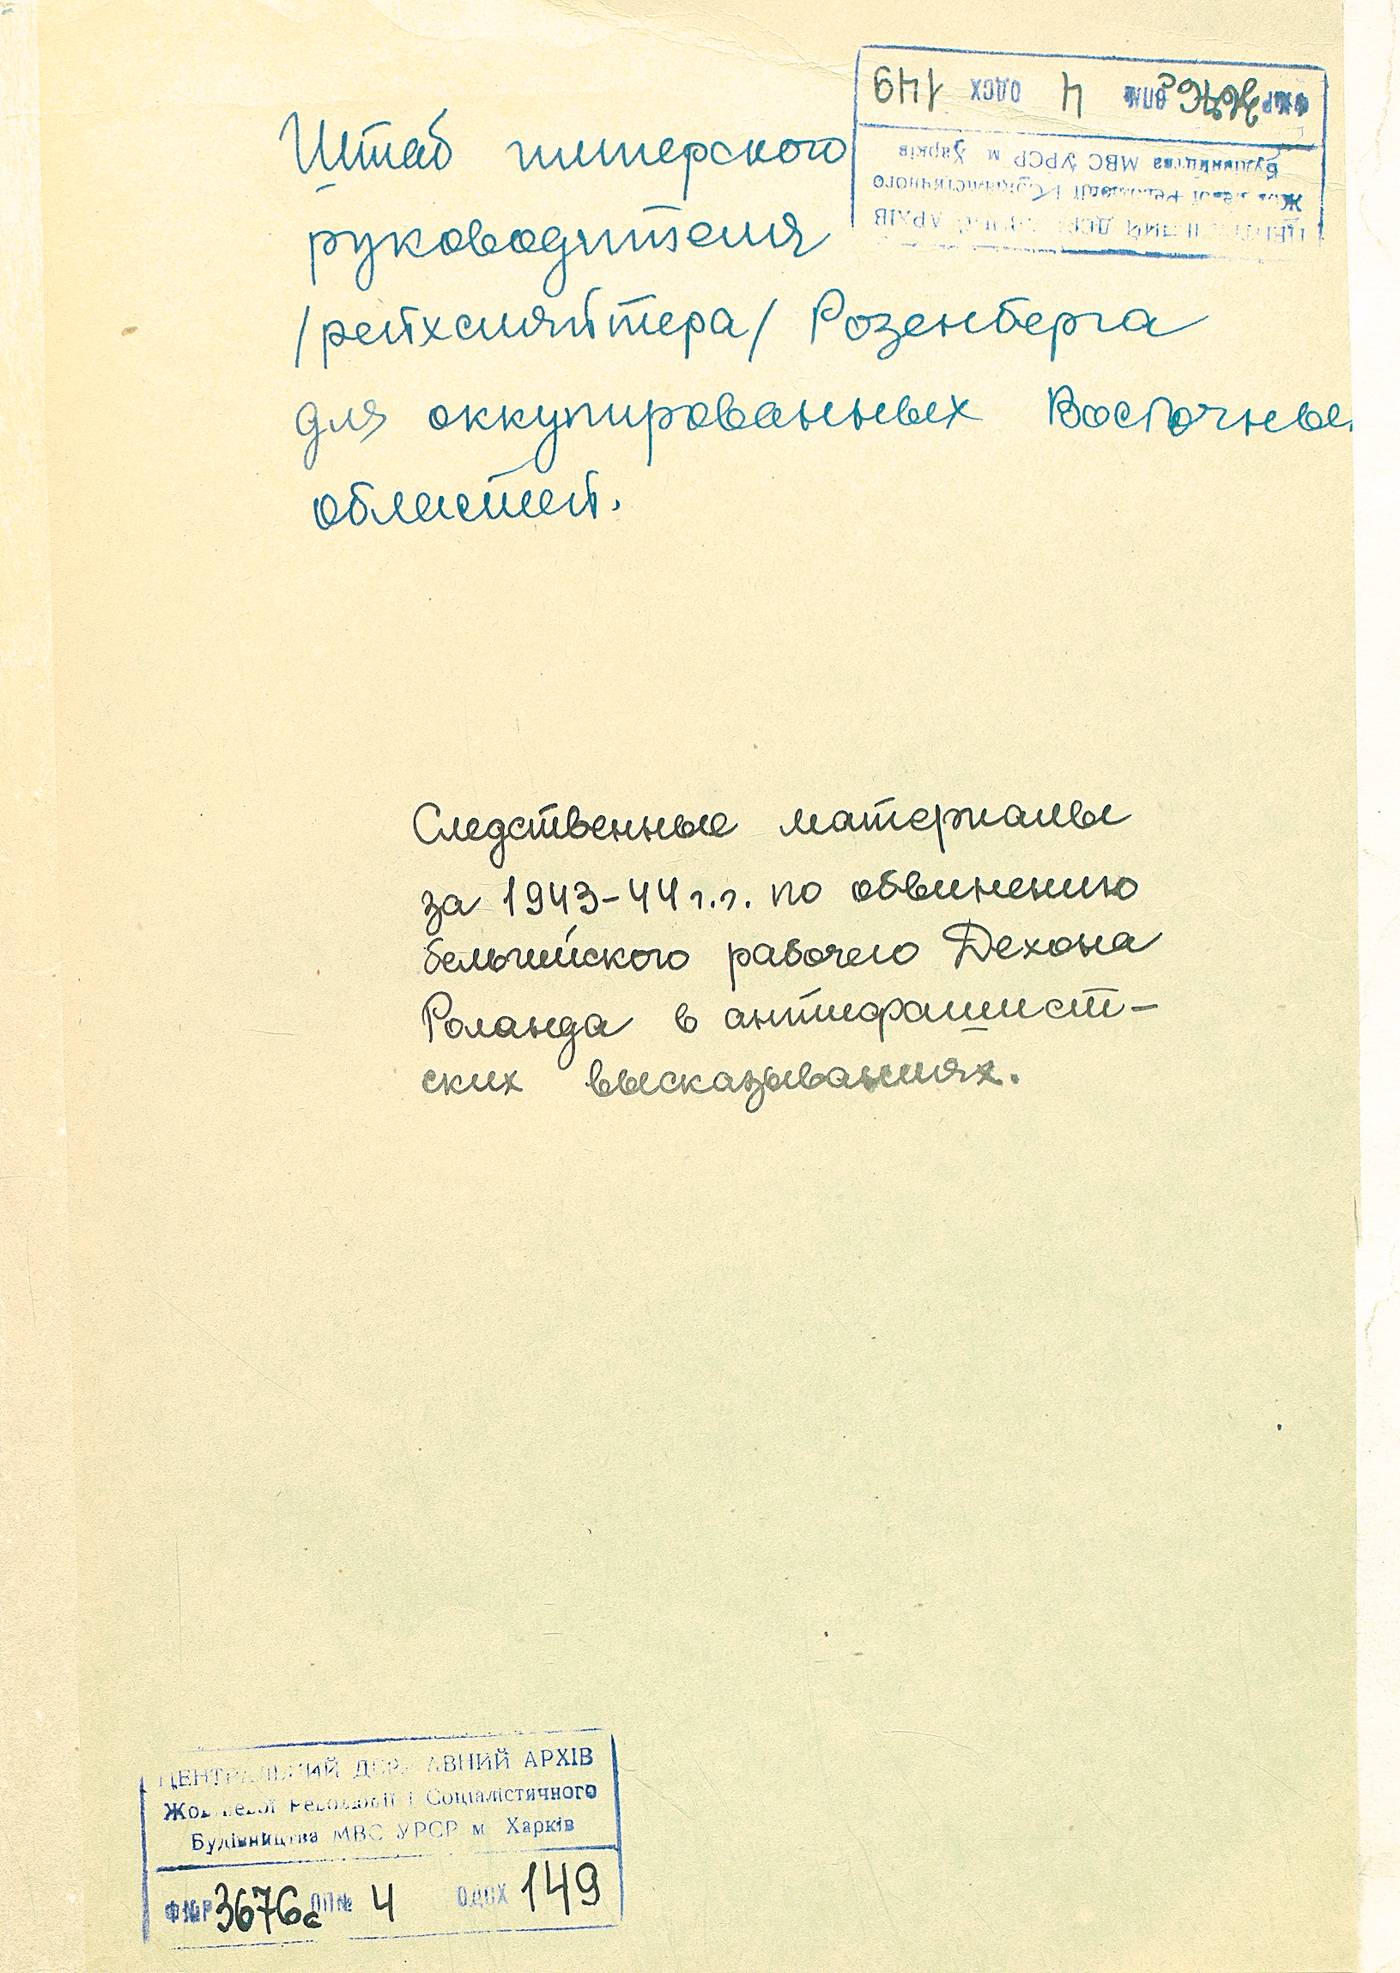 Штаб имперского
руководителя
/рейхсляйтера/ Розенберга
для оккупированных Восточных
областей.
Следственные материалы
за 1943-44 г.г. по обвинению
бельгийского рабочего Дехона
Роланда в антифашист-
ских высказываниях.
ЦЕНТРАЛЬНИЙ ДЕРЖАВНИЙ АРХІВ
Жовтневої Революції і Соціалістичного
Будівництва МВС УРСР м Харків
Ф№Р 3676с ОП№ 4 ОДСХ 149
ЦЕНТРАЛЬНИЙ ДЕРЖАВНИЙ АРХІВ
Жовтневої Революції і Соціалістичного
Будівництва МВС УРСР м Харків
Ф№Р 3676с ОП№ 4 ОДСХ 149